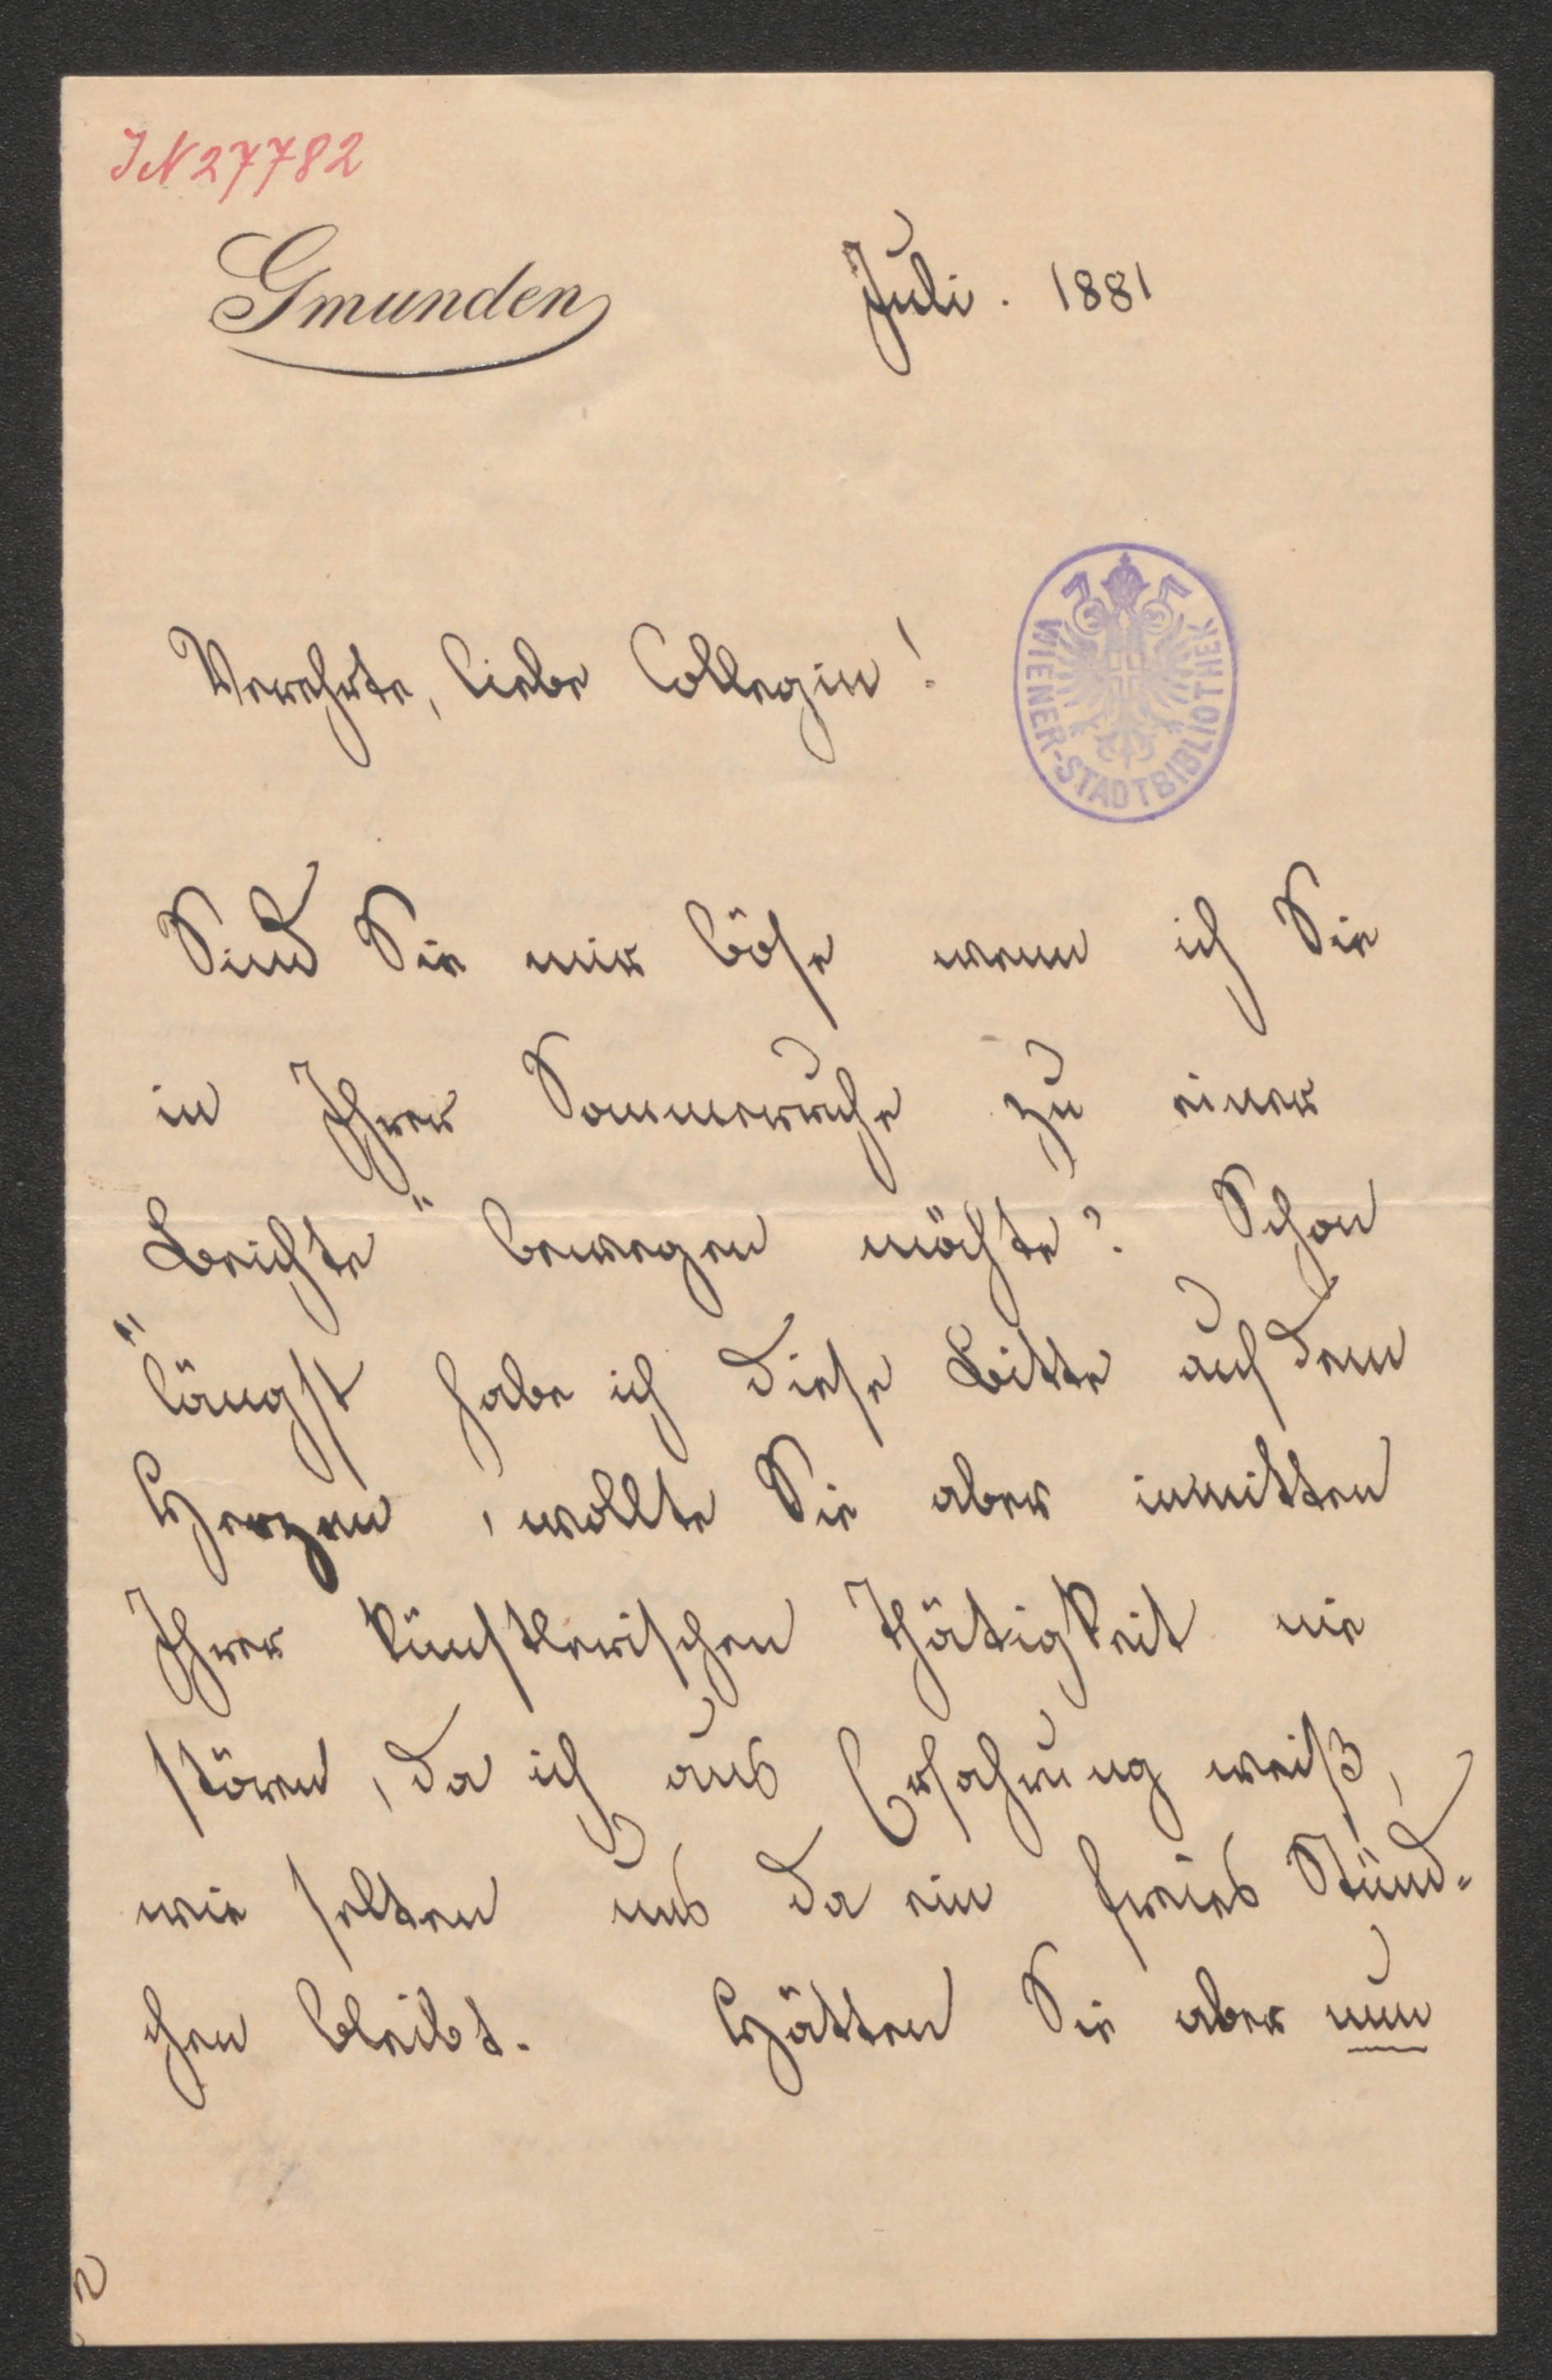 IN 27782
Gmunden
Juli. 1881
Verehrte, liebe Collegin!
WIENER-STADTBIBLIOTHEK
Sind Sie mir böse wenn ich Sie
in Ihrer Sommerruhe zu einer
„Beichte“ bewegen möchte? Schon
längst habe ich diese Bitte auf dem
Herzen, wollte Sie aber inmitten
Ihrer künstlerischen Thätigkeit nie
stören, da ich aus Erfahrung weiß,
wie selten uns da ein freies Stünd-
chen bleibt. Hätten Sie aber nun